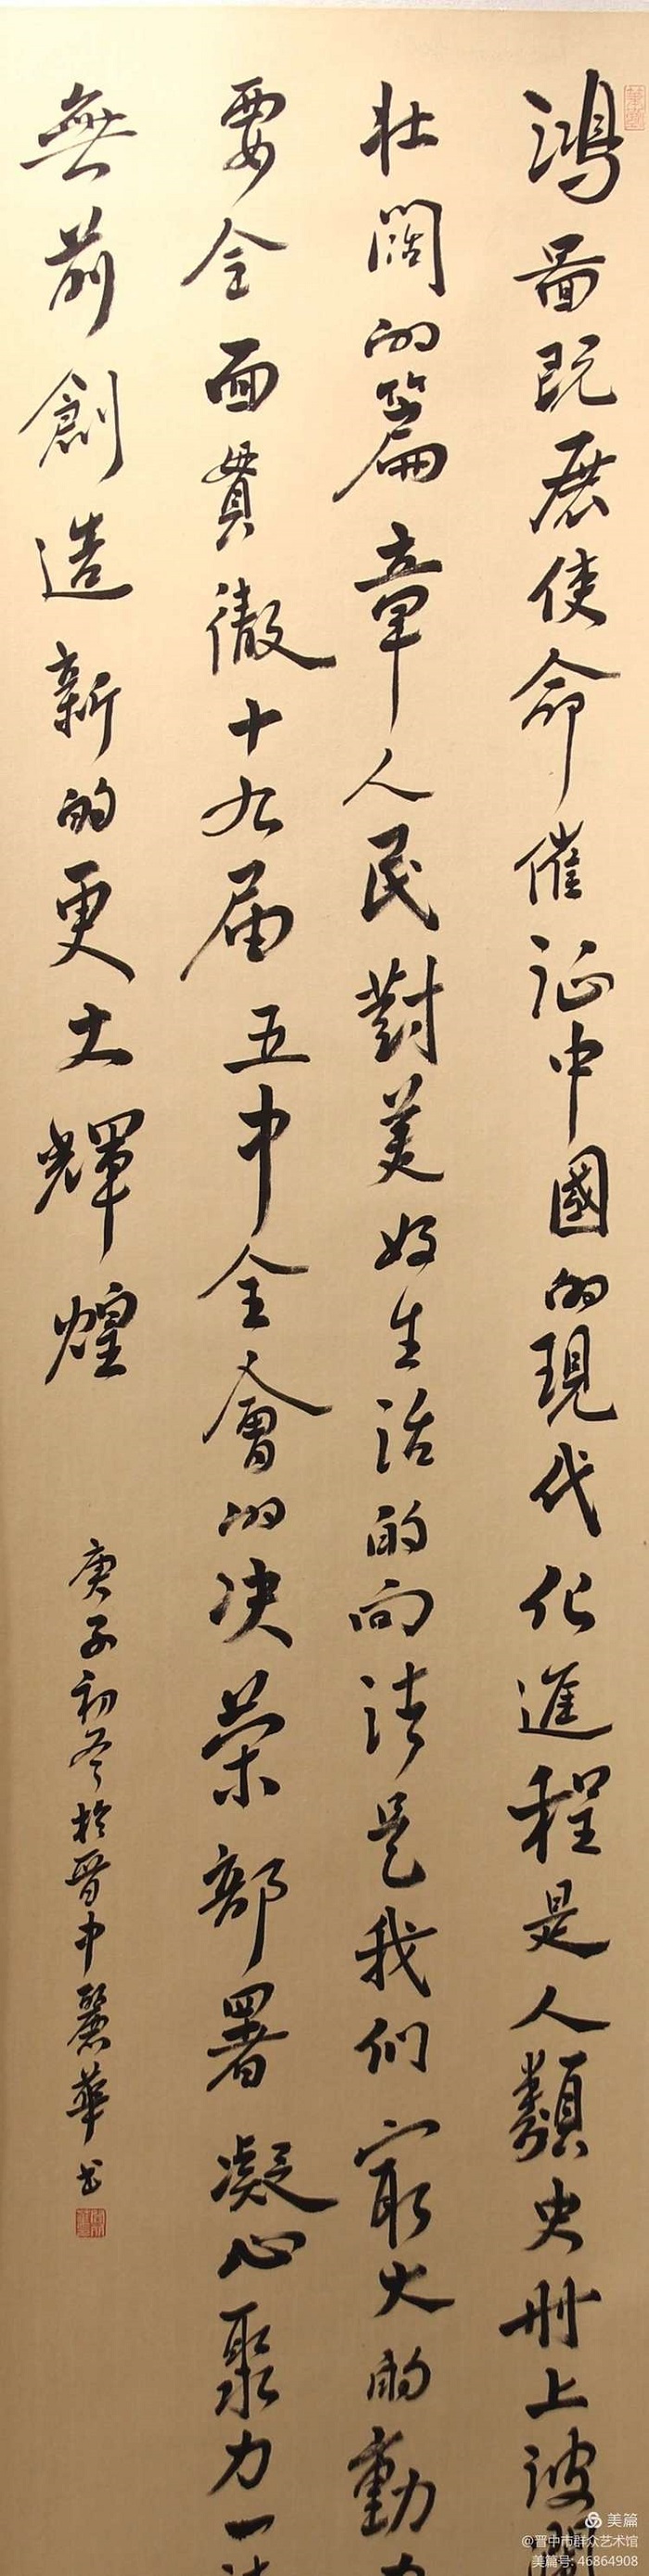 鴻圖既展使命催征中國的現代化進程是人類史册上波
壯闊的篇章人民對美好生活的向往是我们最大的動
要全面貫徹十九届五中全會的决策部署凝心聚力一
無前創造新的更大輝煌
庚子初冬於晋中麗華书
美篇
@晋中市群众艺术馆
美篇号:46864908